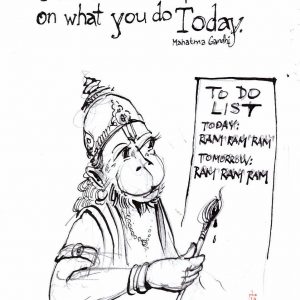 on what you do Today.
Mahatma Gandhi
TO DO
LIST
TODAY:
RAM RAM RAM
TOMORROW:
RAM RAM RAM